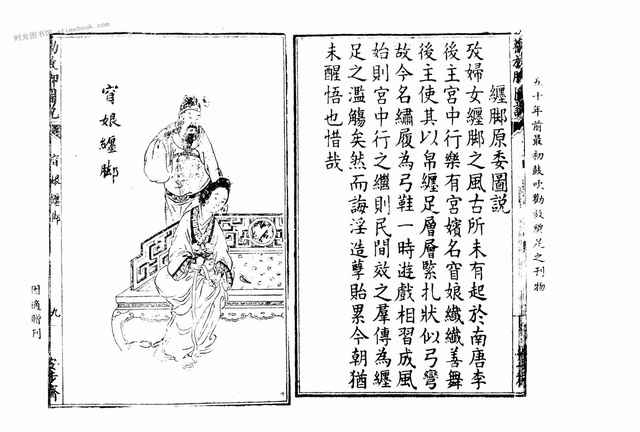 五十年前最初鼓吹勸放纏足之刊物
纏脚原委圖説
攷婦女纏脚之風古所未有起於南唐李
後主宮中行樂有宮嬪名窅娘纖纖善舞
後主使其以帛纏足層層緊扎狀似弓彎
故今名繡履為弓鞋一時遊戲相習成風
始則宮中行之繼則民間效之羣傳為纏
足之濫觴矣然而誨淫造孽貽累今朝猶
未醒悟也惜哉
窅娘纏脚
窅娘纏脚
九
適贈刊